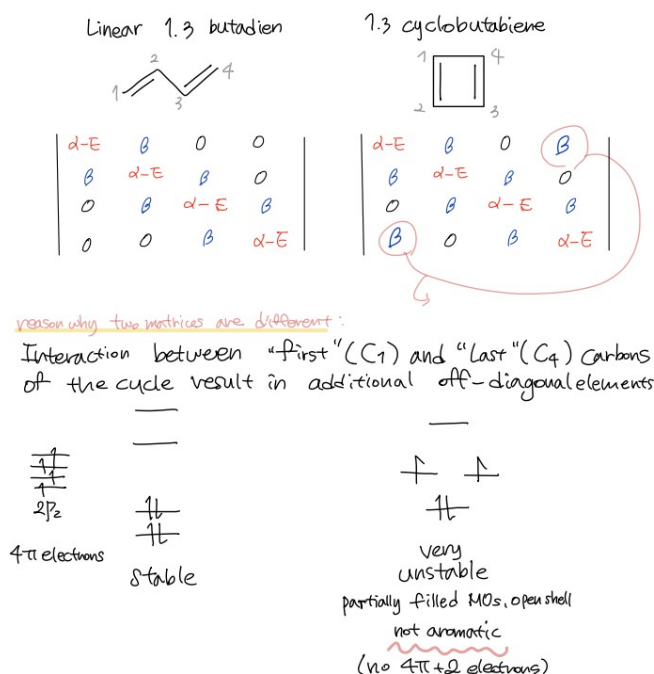 Linear 1.3 butadien
1.3 cyclobutabiene
2
4
1
3
1
4
2
3
α-E β 0 0
β α-E β 0
0 β α-E β
0 0 β α-E
α-E β 0 β
β α-E β 0
0 β α-E β
β 0 β α-E
reason why two matrices are different:
Interaction between "first"(C1) and "Last"(C4) carbons
of the cycle result in additional off-diagonal elements
2Pz
4π electrons
stable
very
unstable
partially filled MOs, open shell
not aromatic
(no 4π+2 electrons)